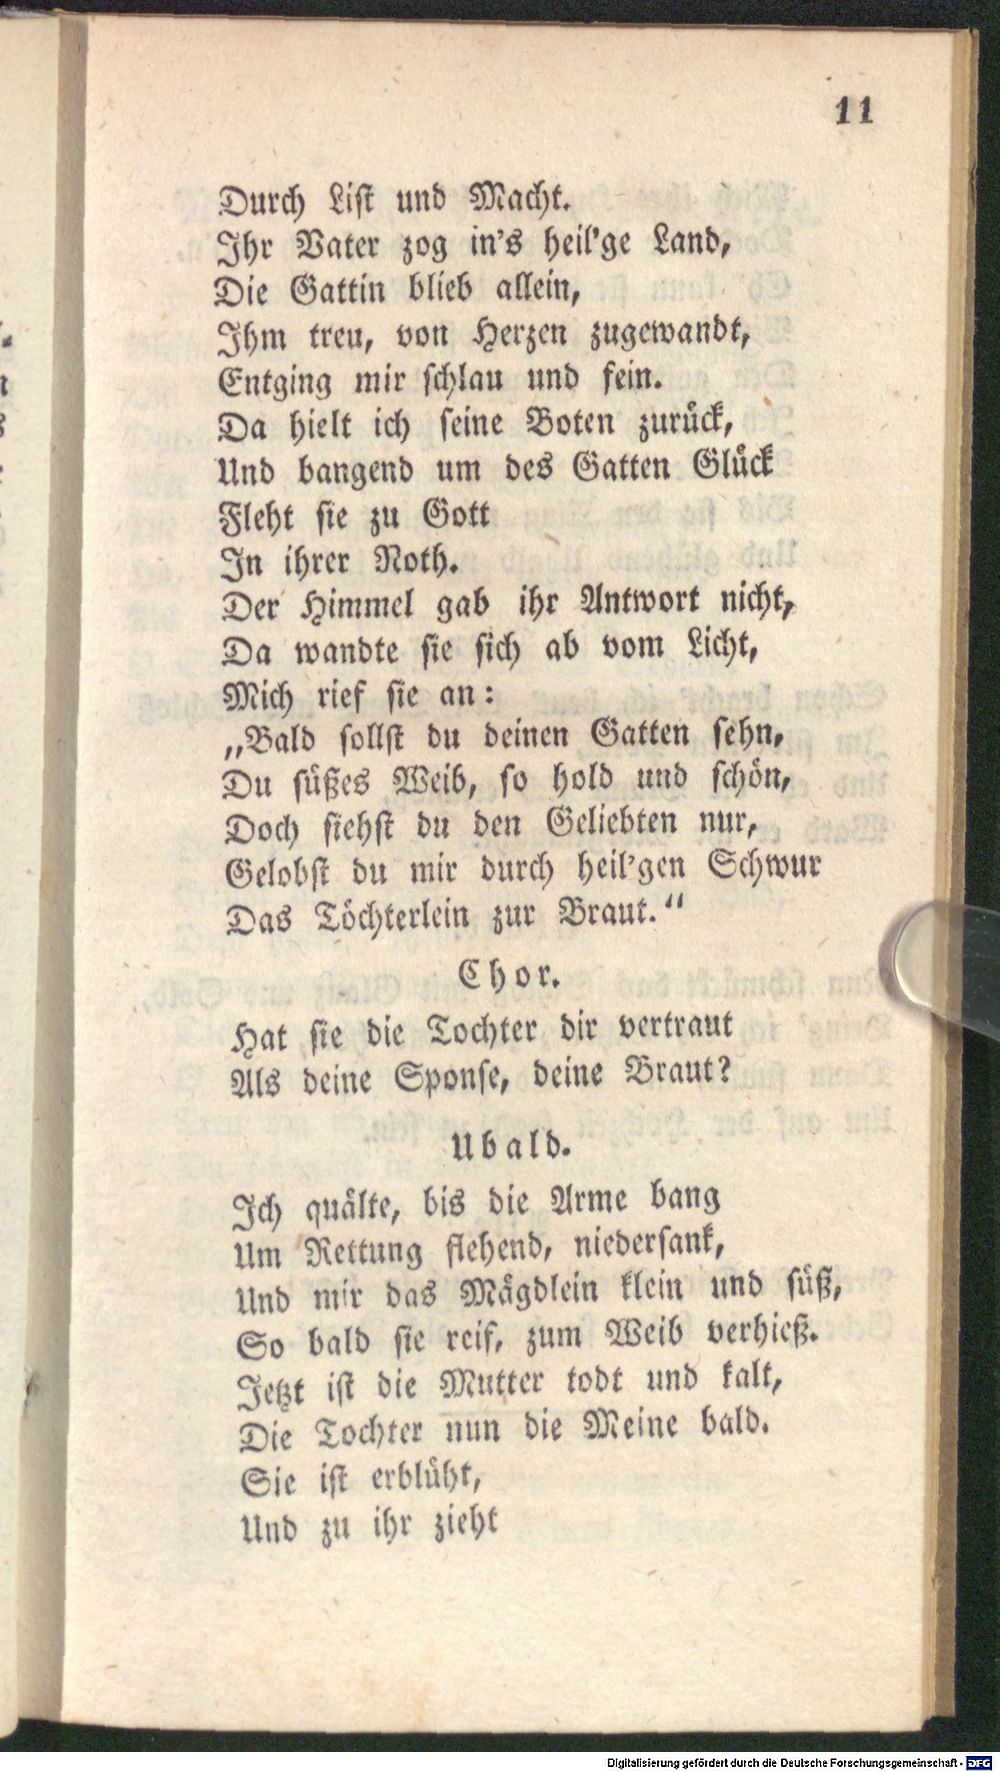 11
Durch List und Macht.
Ihr Vater zog in's heil'ge Land,
Die Gattin blieb allein,
Ihm treu, von Herzen zugewandt,
Entging mir schlau und fein.
Da hielt ich seine Boten zurück,
Und bangend um des Gatten Glück
Fleht sie zu Gott
In ihrer Noth.
Der Himmel gab ihr Antwort nicht,
Da wandte sie sich ab vom Licht,
Mich rief sie an:
„Bald sollst du deinen Gatten sehn,
Du süßes Weib, so hold und schön,
Doch siehst du den Geliebten nur,
Gelobst du mir durch heil'gen Schwur
Das Töchterlein zur Braut.“
Chor.
Hat sie die Tochter dir vertraut
Als deine Sponse, deine Braut?
Ubald.
Ich quälte, bis die Arme bang
Um Rettung flehend, niedersank,
Und mir das Mägdlein klein und süß,
So bald sie reif, zum Weib verhieß.
Jetzt ist die Mutter todt und kalt,
Die Tochter nun die Meine bald.
Sie ist erblüht,
Und zu ihr zieht
Digitalisierung gefördert durch die Deutsche Forschungsgemeinschaft - DFG